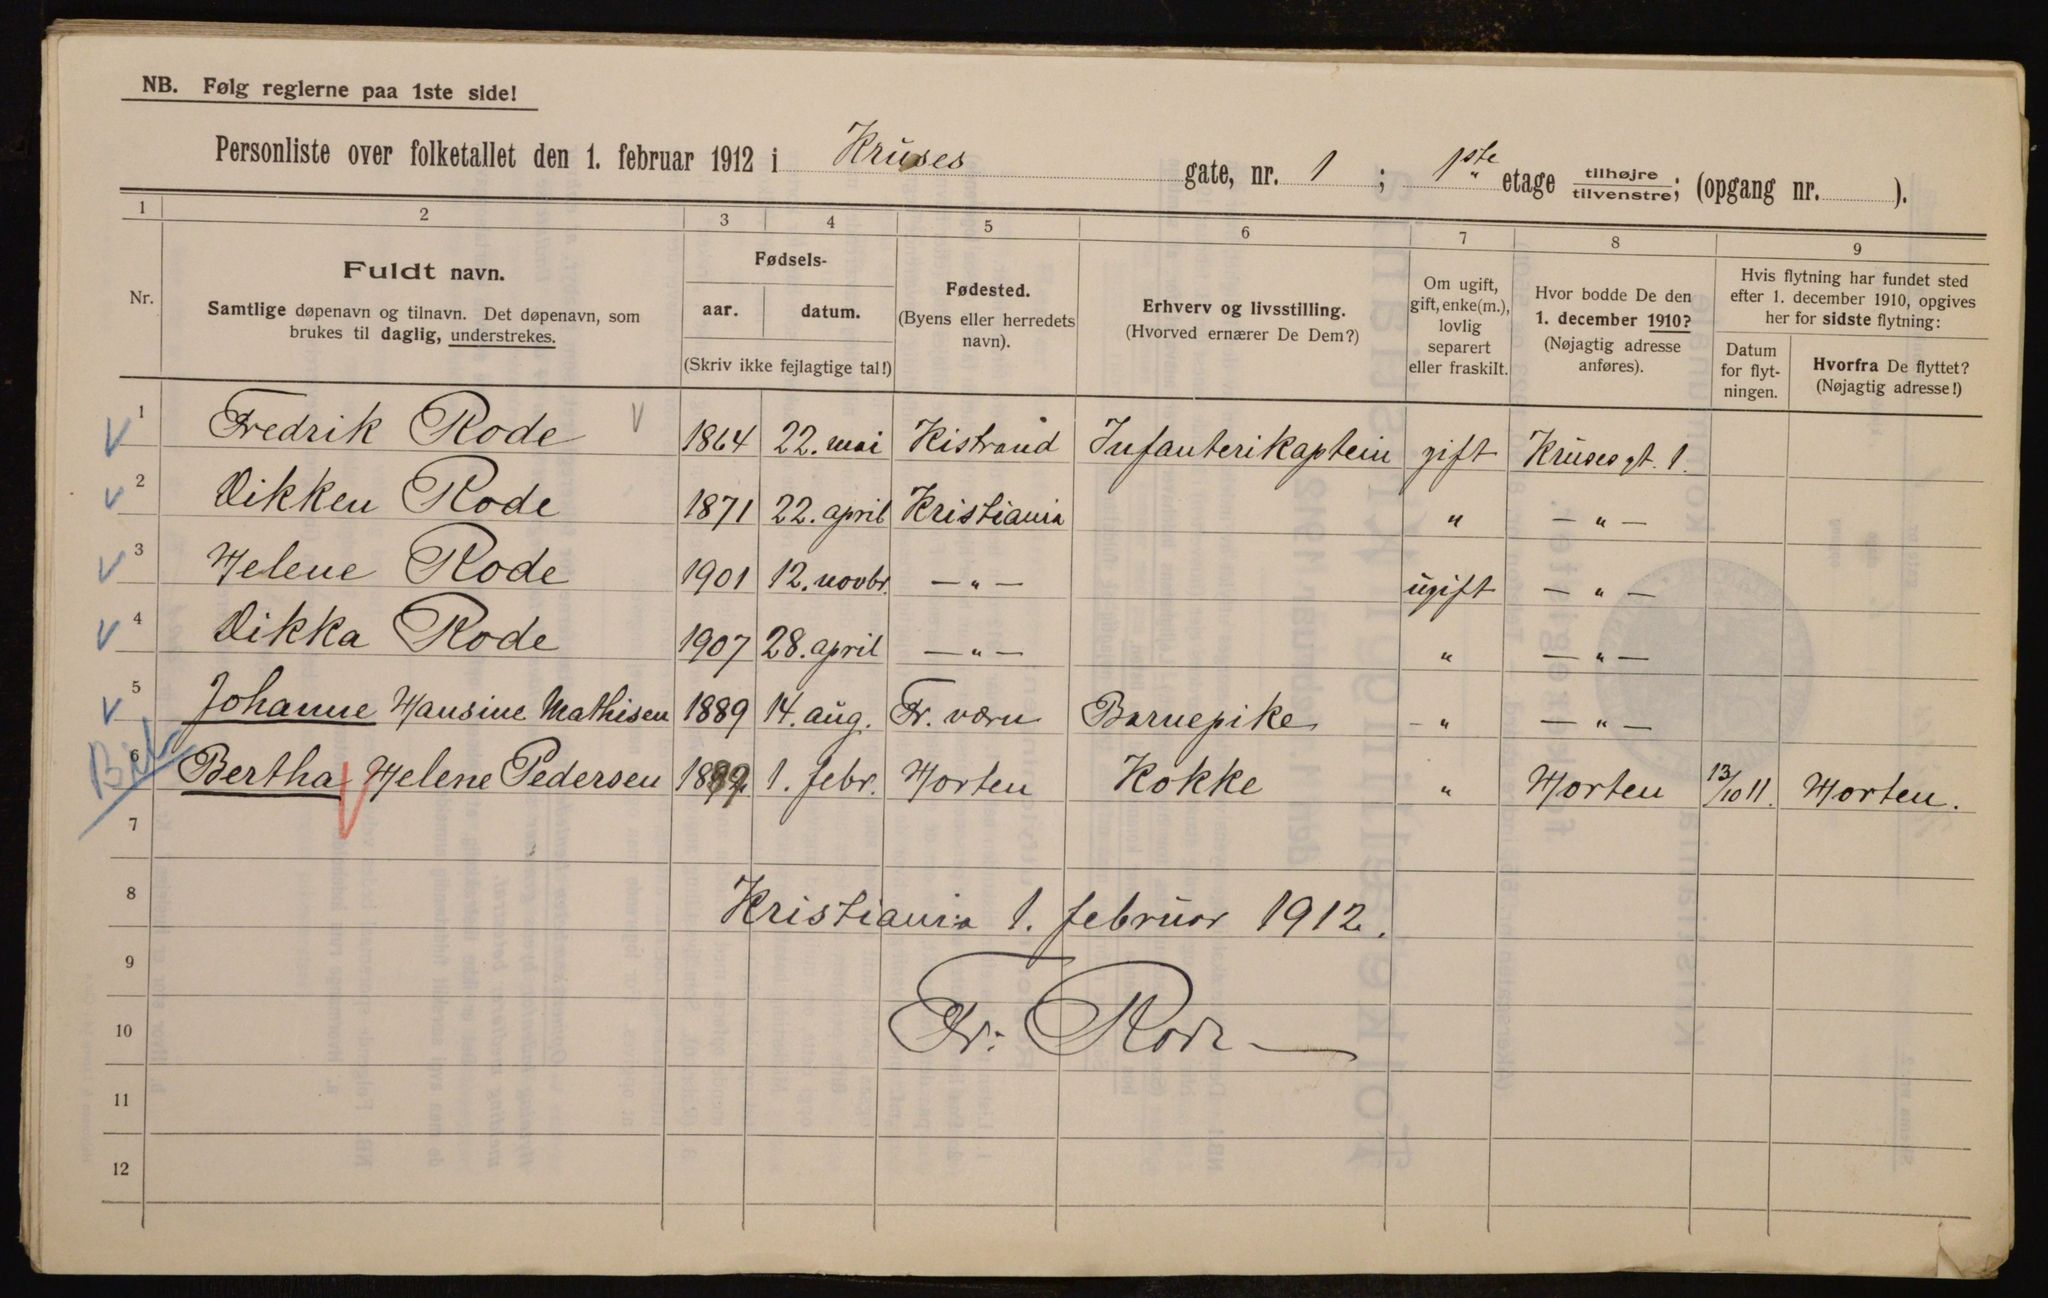 NB. Følg reglerne paa 1ste side!
Personliste over folketallet den 1. februar 1912 i Kruses gate, nr. 1; 1ste etage tilhøjre/tilvenstre; (opgang nr. ).
1 2 3 4 5 6 7 8 9
Nr.
Fuldt navn.
Samtlige døpenavn og tilnavn. Det døpenavn, som
brukes til daglig, understrekes.
Fødsels-
aar. datum.
(Skriv ikke fejlagtige tal!)
Fødested.
(Byens eller herredets
navn).
Erhverv og livsstilling.
(Hvorved ernærer De Dem?)
Om ugift,
gift, enke(m.),
lovlig
separert
eller fraskilt.
Hvor bodde De den
1. december 1910?
(Nøjagtig adresse
anføres).
Hvis flytning har fundet sted
efter 1. december 1910, opgives
her for sidste flytning:
Datum
for flyt-
ningen.
Hvorfra De flyttet?
(Nøjagtig adresse!)
1 Fredrik Rode 1864 22. mai Kistrand Infanterikaptein gift Krusesgt. 1.
2 Dikken Rode 1871 22. april Kristiania " — " —
3 Helene Rode 1901 12. novbr. — " — ugift — " —
4 Dikka Rode 1907 28. april — " — " — " —
5 Johanne Hansine Mathisen 1889 14. aug. Fr. værn Barnepike - " — " —
6 Bertha Helene Pedersen 1. febr. Horten Kokke " Horten 13/10 11. Horten.
7
8 Kristiania 1. februar 1912.
9
10 Fr. Rode
11
12